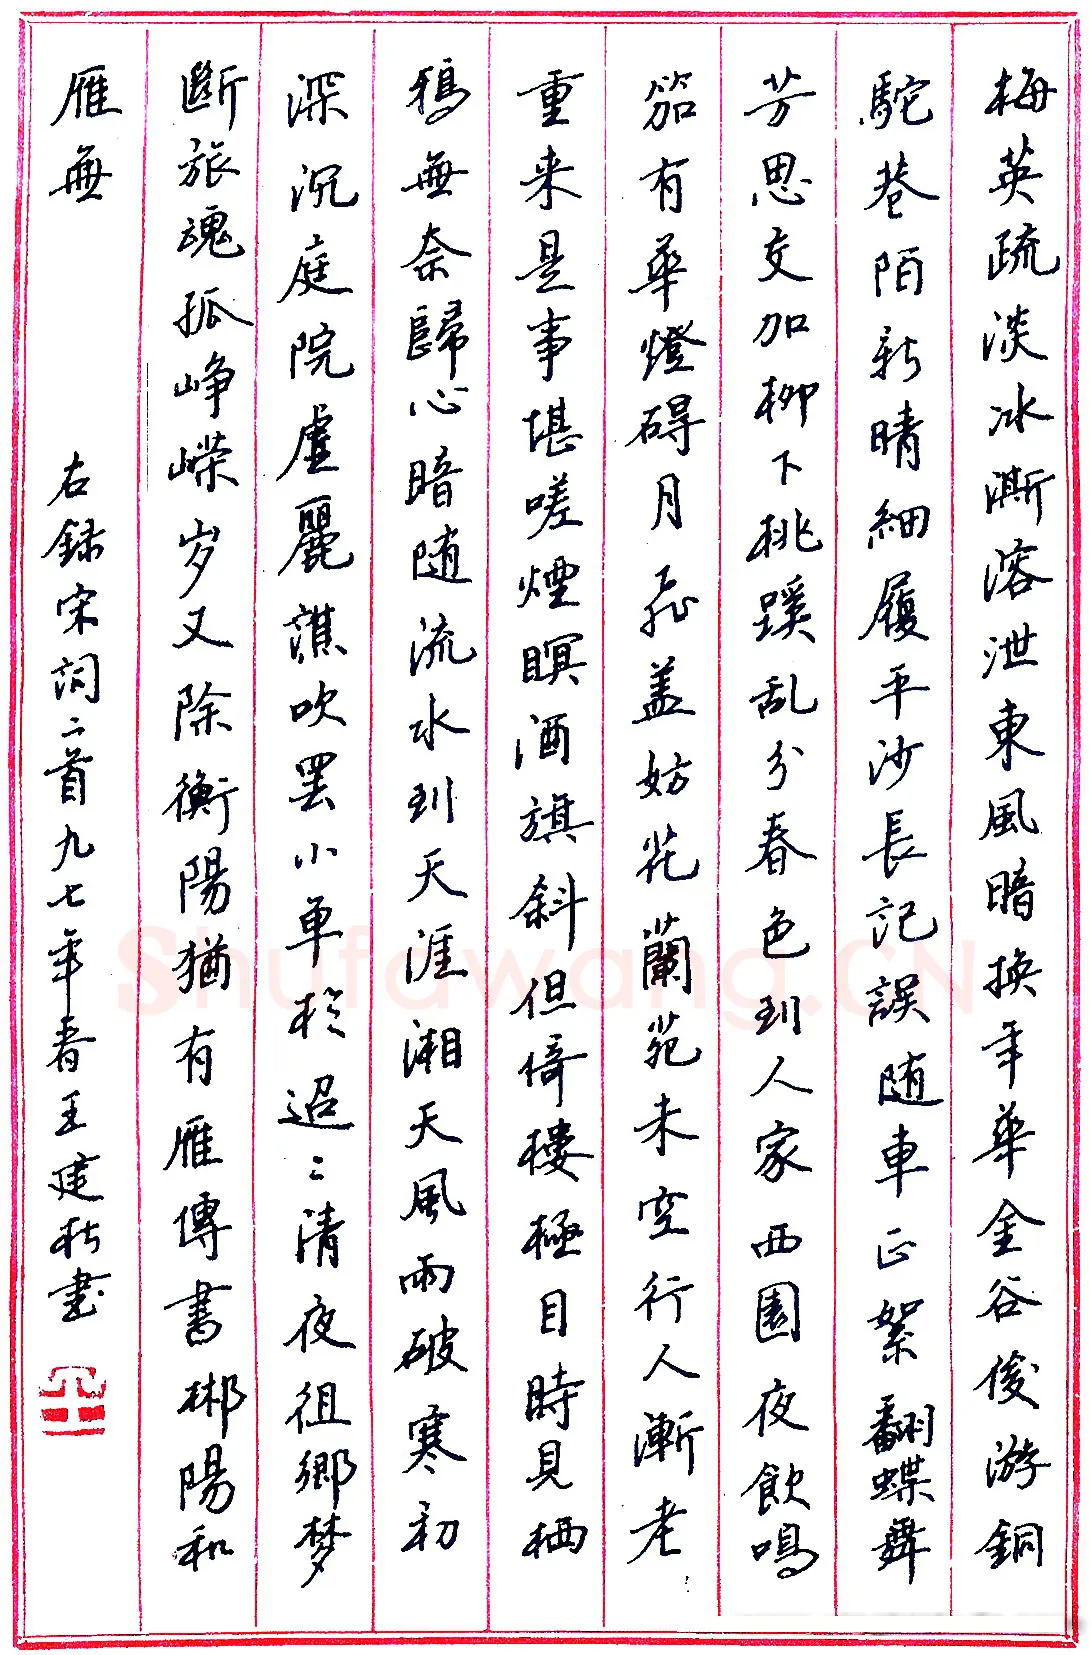 梅英疏淡冰澌溶泄東風暗换年華金谷俊游銅
駝巷陌新晴細履平沙長記誤随車正絮翻蝶舞
芳思交加柳下桃蹊乱分春色到人家西園夜飲鳴
笳有華燈碍月飛盖妨花蘭苑未空行人漸老
重来是事堪嗟煙暝酒旗斜但倚樓極目時見栖
鴉無奈歸心暗随流水到天涯湘天風雨破寒初
深沉庭院虚麗譙吹罢小单於迢〻清夜徂鄉梦
斷旅魂孤峥嵘岁又除衡陽猶有雁傳書郴陽和
雁無
右録宋詞二首九七年春王建書
Shufawang.CN